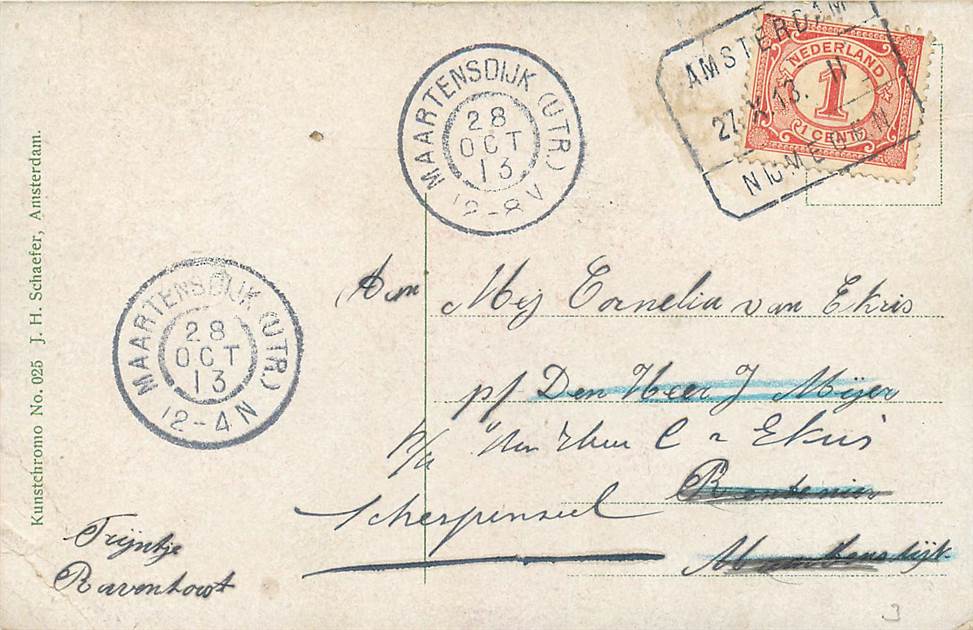 AMSTERDAM
27.X.13. II
NIJMEGEN
NEDERLAND
1
1 CENT
MAARTENSDIJK (UTR.)
28
OCT
13
12-8V
MAARTENSDIJK (UTR.)
28
OCT
13
12-4N
Kunstchromo No. 025 J. H. Schaefer, Amsterdam.
Aan Mej Cornelia van Ekris
p/ Den Heer J Meijer
p/a den Heer C v Ekris
Rentenier
Scherpenzeel
Maartensdijk
Trijntje
Ravenhorst
3